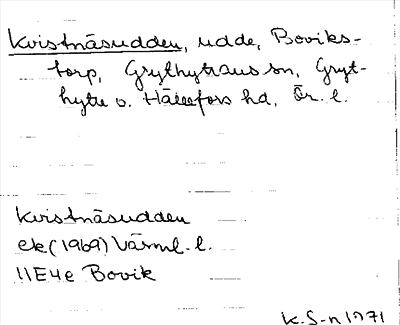 Kvistnäsudden, udde, Boviks-
torp, Grythyttans sn, Gryt-
hytte o. Hällefors hd, Ör. l.
Kvistnäsudden
ek (1969) Värml. l.
11E4e Bovik
K.S-n 1971